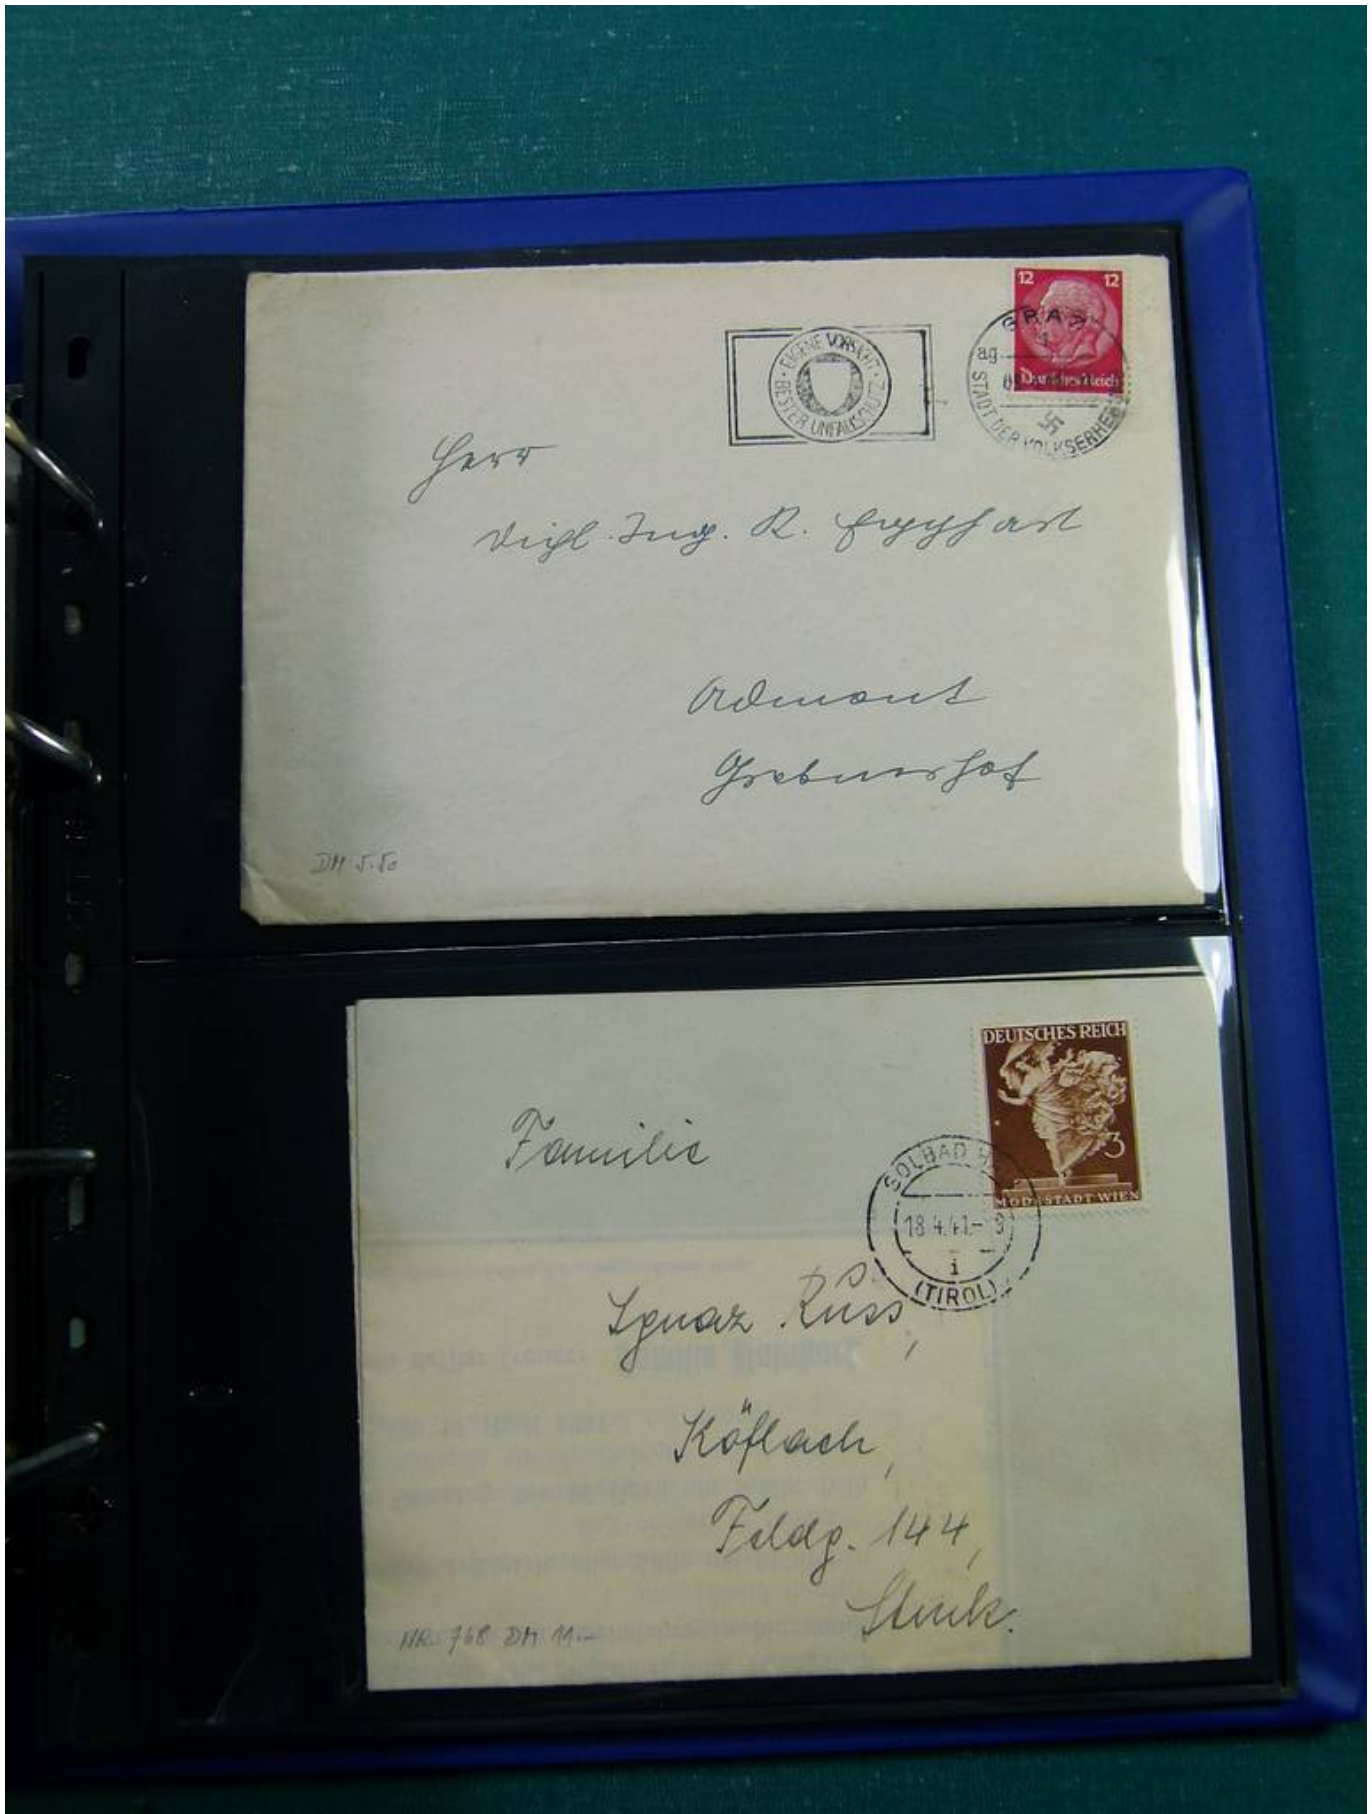 12 12
Deutsches Reich
GRAZ
ag
STADT DER VOLKSERHEBUNG
EIGENE VORSICHT
BESTER UNFALLSCHUTZ
Herr
Dipl. Ing. R.
Admont
Grabnerhof
DM 5.50
DEUTSCHES REICH
3
MODESTADT WIEN
SOLBAD
18.4.41.- 9
i
(TIROL)
Familie
Ignaz Russ,
Köflach,
Feldg. 144,
Stmk.
NR. 768 DM 11.-